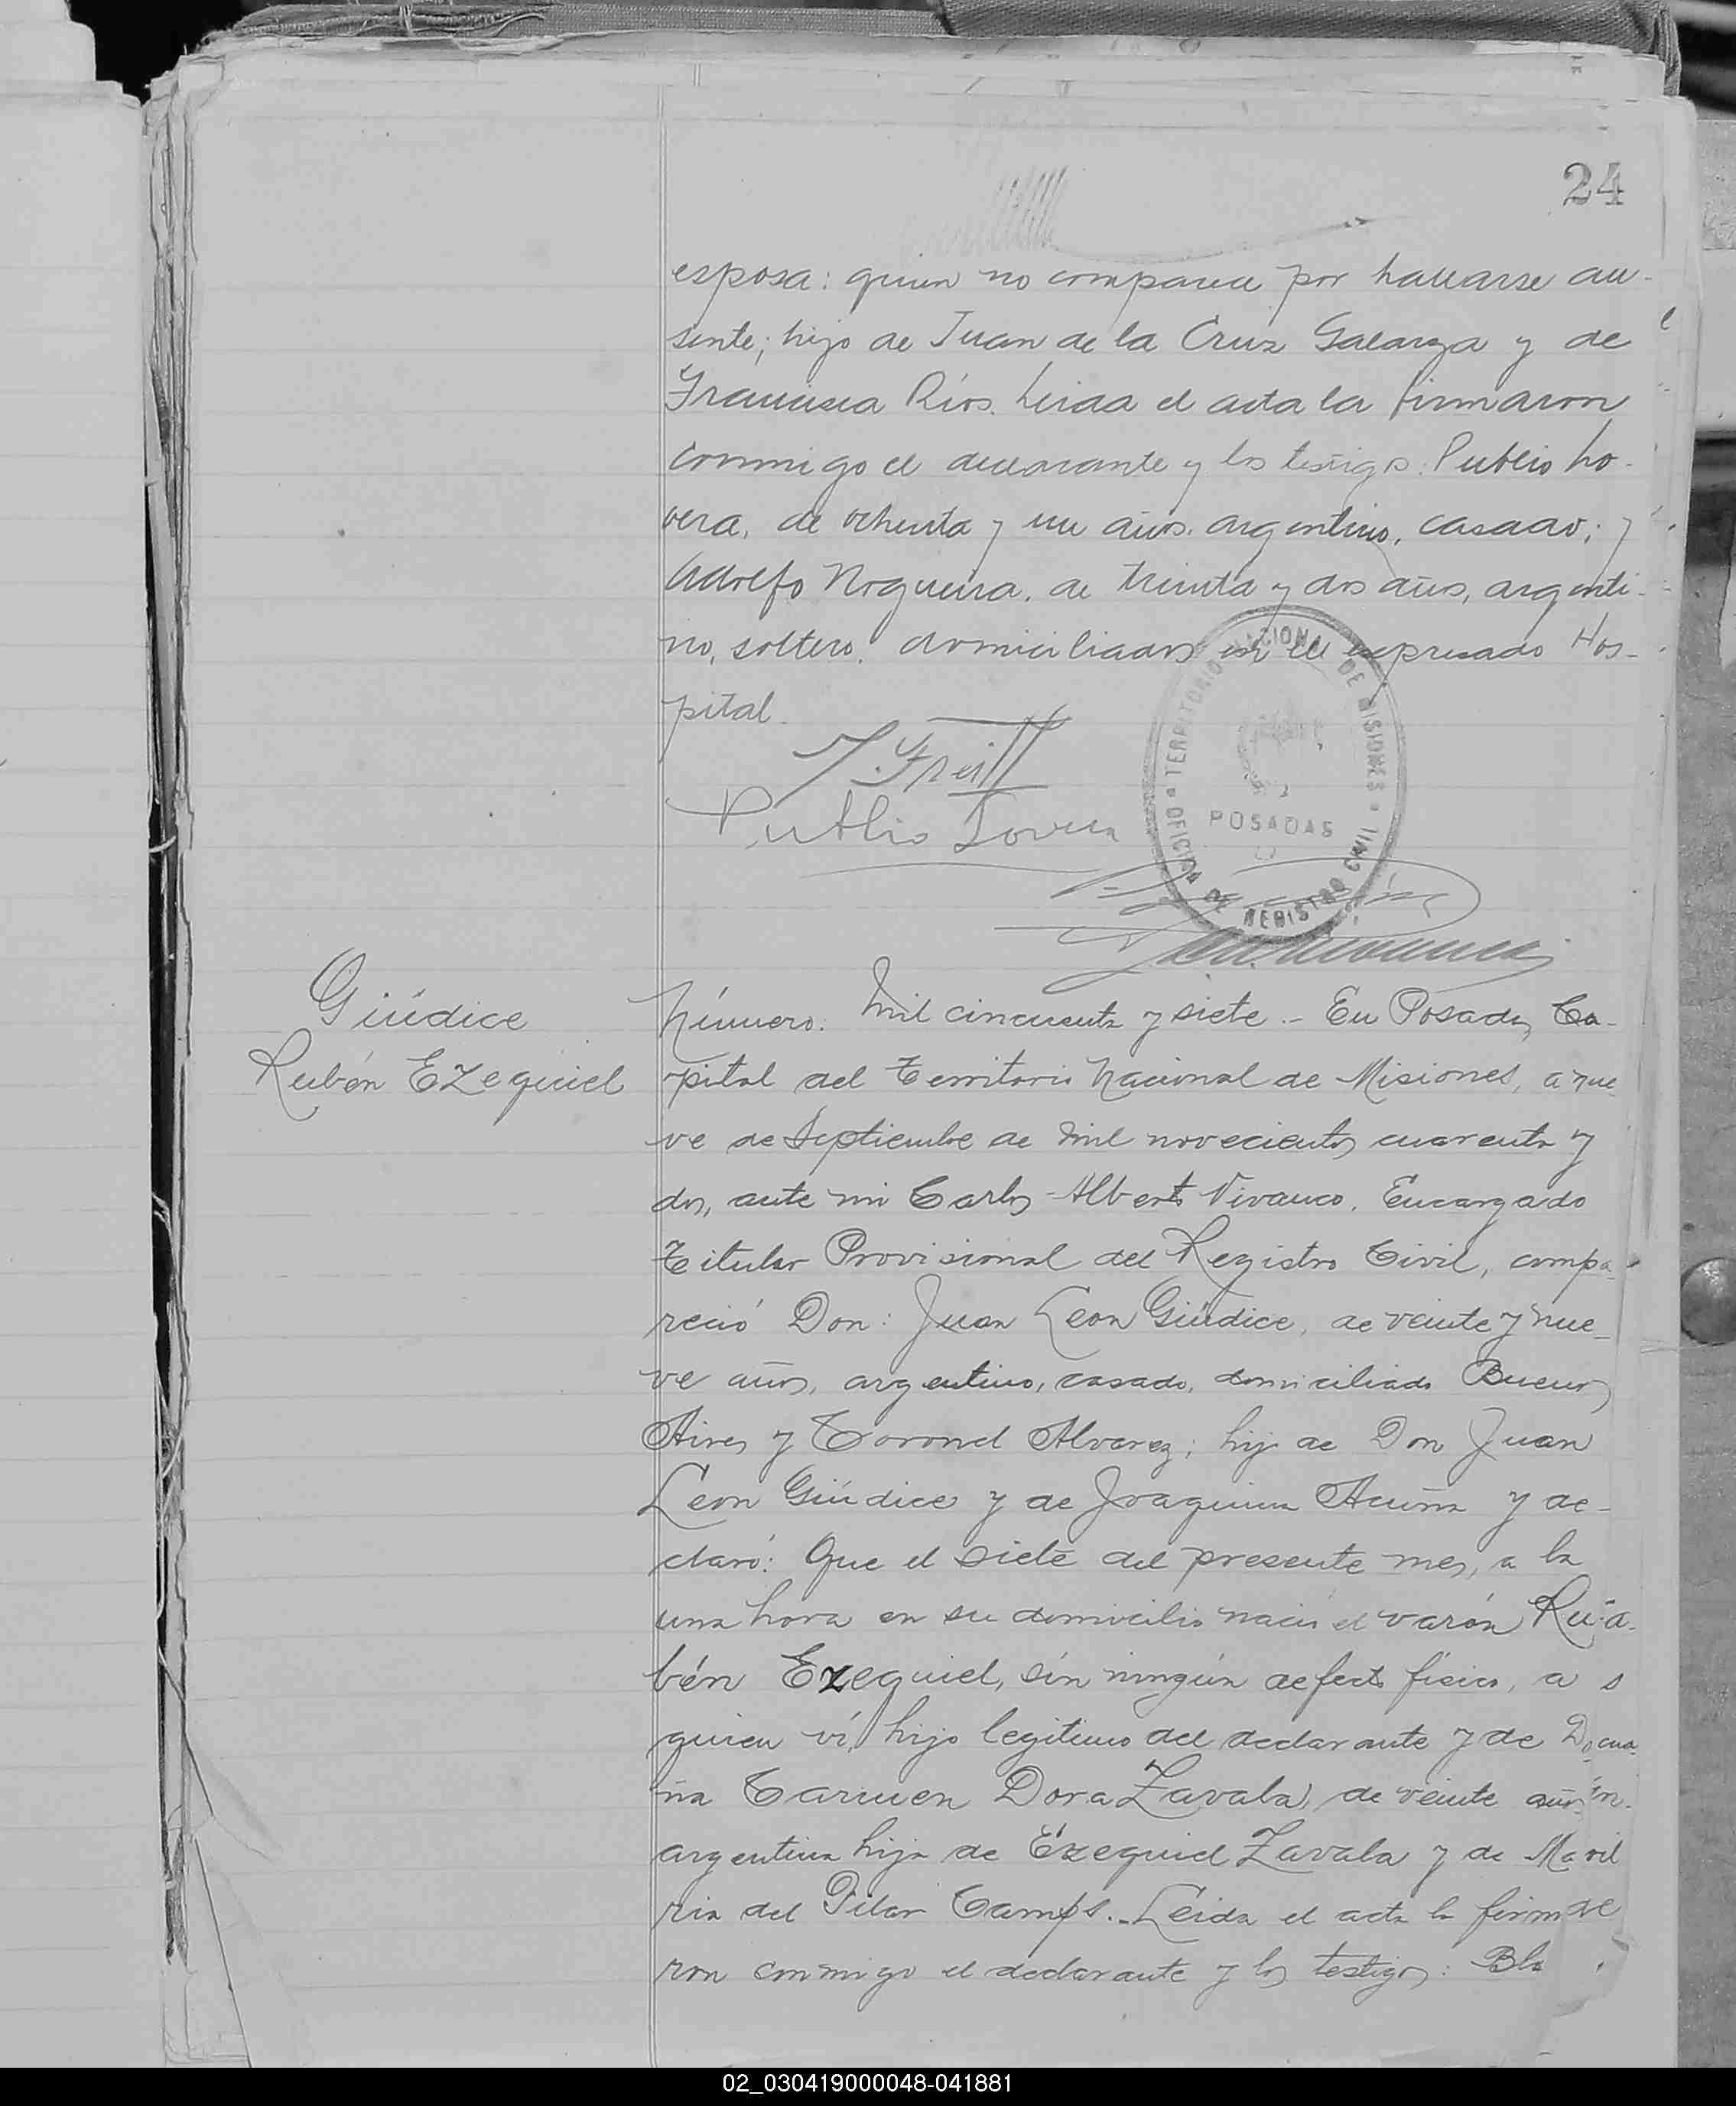 24
esposa: quien no comparece por hallarse au-
sente; hijo de Juan de la Cruz Galarza y de
Francisca Ríos. Leida el acta la firmaron
conmigo el declarante y los testigos: Publio Lo-
vera, de ochenta y un años, argentino, casado; y
Adolfo Nogueira, de treinta y dos años, argenti-
no, soltero, domiciliados en el expresado Hos-
pital.
Publio Lovera
TERRITORIO NACIONAL DE MISIONES
POSADAS
OFICINA DE REGISTRO CIVIL
Giúdice
Rubén Ezequiel
Número. Mil cincuenta y siete.- En Posadas, Ca-
pital del Territorio Nacional de Misiones, a nue-
ve de Septiembre de mil novecientos cuarenta y
dos, ante mi Carlos Alberto Vivanco, Encargado
Titular Provisional del Registro Civil, compa-
reció Don: Juan Leon Giúdice, de veinte y nue-
ve años, argentino, casado, domiciliado Buenos
Aires y Coronel Alvarez; hijo de Don Juan
Leon Giúdice y de Joaquina Acuña y de-
claró: Que el siete del presente mes, a la
una hora en su domicilio nació el varón Ru-
bén Ezequiel, sin ningún defecto físico, a
quien ví, hijo legitimo del declarante y de Do-
ña Carmen Dora Zavala, de veinte años
argentina hija de Ezequiel Zavala y de Ma-
ria del Pilar Camps.- Leida el acta la firma-
ron conmigo el declarante y los testigos: Bla
02_030419000048-041881